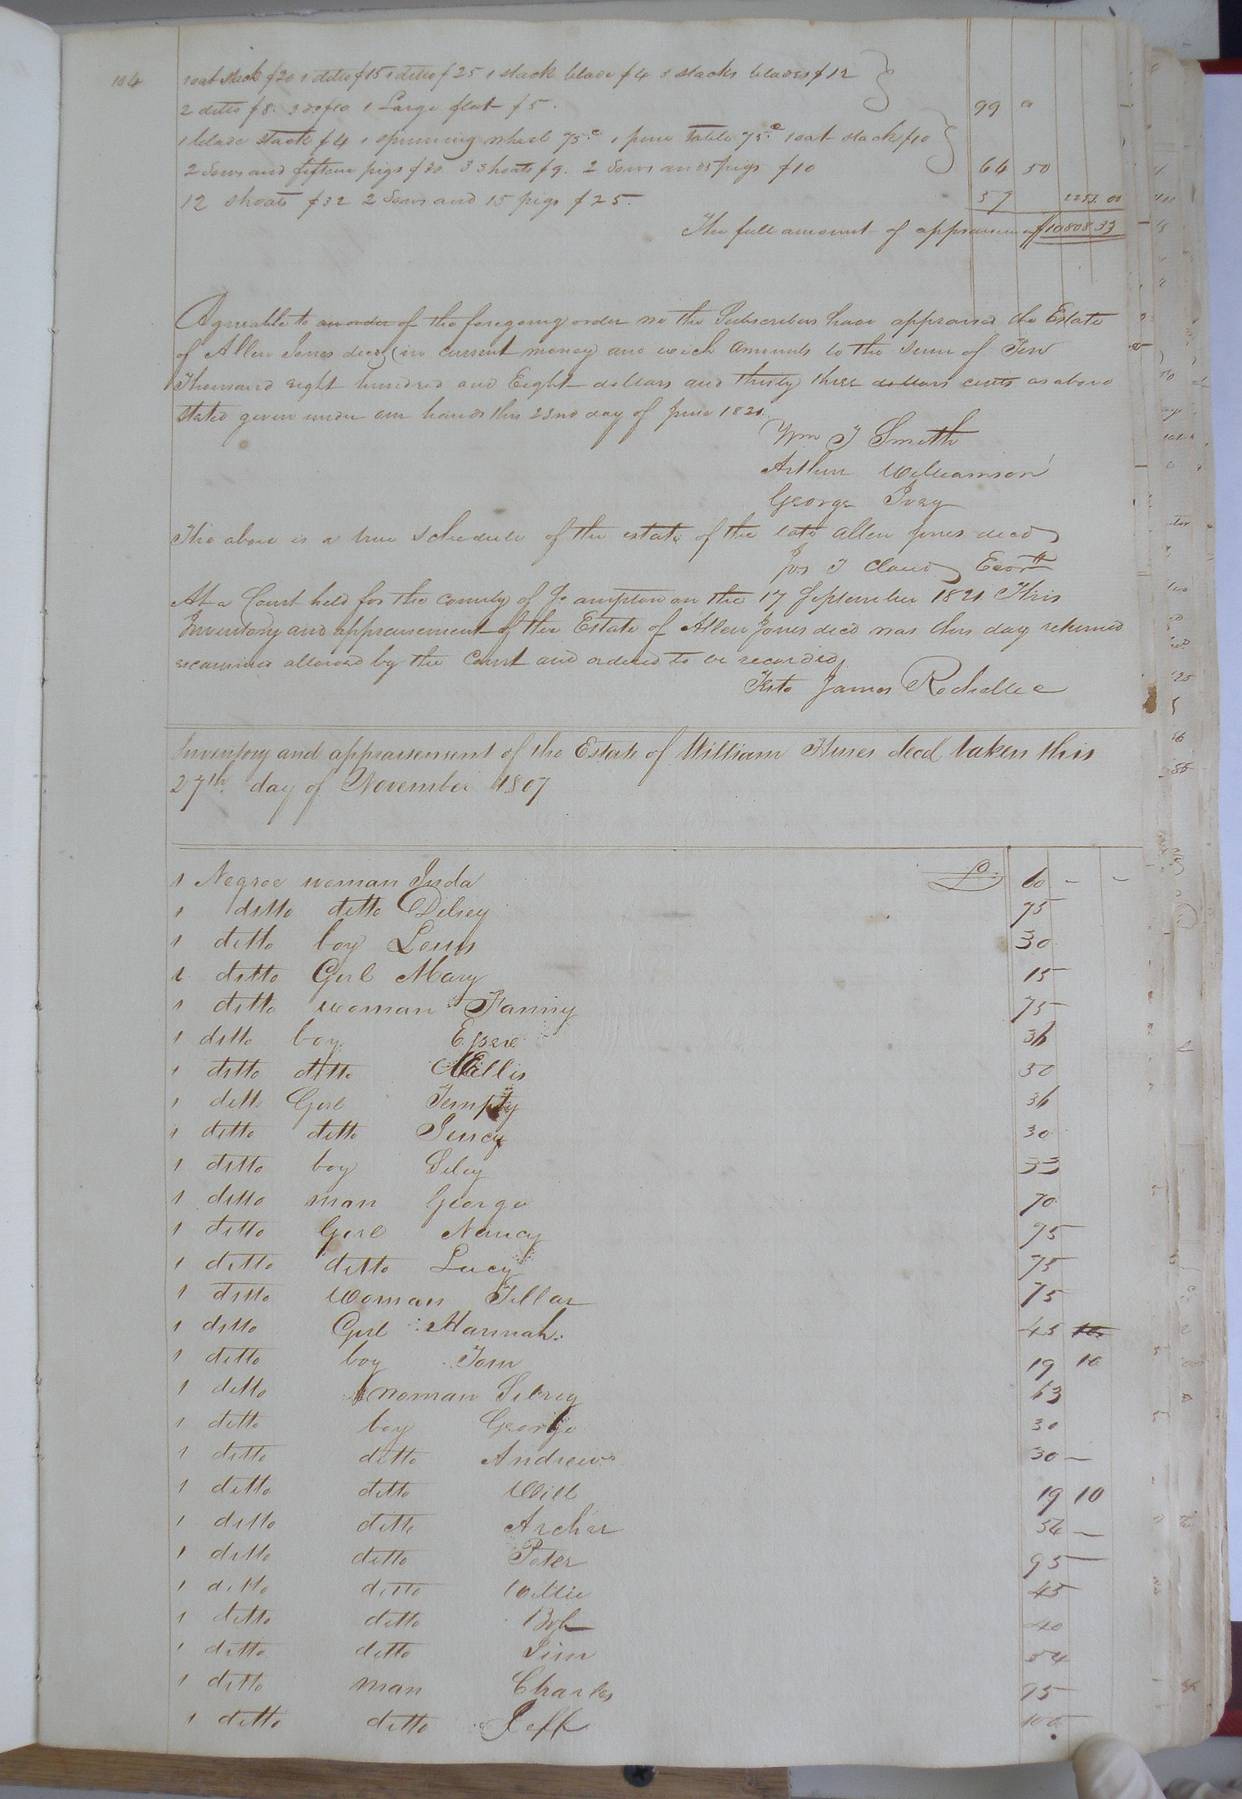 104
1 oat stack $20 1 ditto $15 1 ditto $25 1 stack blade $4 3 stacks blades $12
2 ditto $8. 3 do $10 1 Large flat $5. 99 0
1 blade stack $4 1 spinning wheel 75.c 1 pine table 75.c 1 oat stack $10
2 Sows and fifteen pigs $30. 3 shoats $9. 2 Sows and 5 pigs $10 64 50
12 shoats $32 2 Sows and 15 pigs $25. 57
The full amount of $10808.33
Agreeable to an order of the foregoing order we the Subscribers have appraised the Estate
of Allen Jones decd (in current money) and which amounts to the sum of Ten
Thousand eight hundred and Eight dollars and thirty three dollars cents as above
stated given under our hands this 22nd day of June 1821.
Wm J Smith
Arthur Williamson
George Ivey
The above is a true Schedule of the estate of the late Allen Jones decd
Jos T Claud Exor
At a Court held for the county of on the 17 September 1821 This
Inventory and appraisement of the Estate of Allen Jones decd was this day returned
examined allowed by the Court and ordered to be recorded
Teste James Rochelle
Inventory and appraisement of the Estate of William Hines decd taken this
27th day of November 1807
1 Negroe woman Juda £ 60 - -
1 ditto ditto Delsey 75
1 ditto boy Lewis 30
1 ditto Girl Mary 15
1 ditto woman Fanny 75
1 ditto boy 36
1 ditto ditto Willis 30
1 ditto Girl Tempty 36
1 ditto ditto Juncy 30
1 ditto boy 33
1 ditto man George 70
1 ditto Girl Nancy 75
1 ditto ditto Lucy 75
1 ditto Woman Tillar 75
1 ditto Girl Hannah 45
1 ditto boy Tom 19 10
1 ditto woman 63
1 ditto boy George 30
1 ditto ditto Andrew 30 -
1 ditto ditto Will 19 10
1 ditto ditto Archer 54 -
1 ditto ditto Peter 95
1 ditto ditto Willie 45
1 ditto ditto Bob 40
1 ditto ditto Jim 54
1 ditto man Charles 95
1 ditto ditto Jeff 100